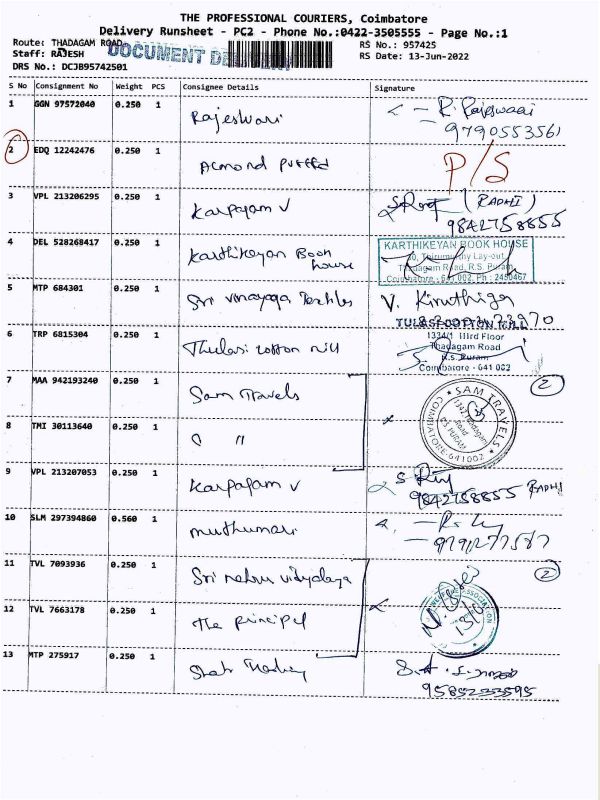 THE PROFESSIONAL COURIERS, Coimbatore
Delivery Runsheet - PC2 - Phone No.:0422-3505555 - Page No.:1
Route: THADAGAM ROAD
Staff: RAJESH
DRS No.: DCJB95742501
DOCUMENT
RS No.: 957425
RS Date: 13-Jun-2022
S No Consignment No Weight PCS Consignee Details Signature
1 GGN 97572040 0.250 1 Rajeshwari R. Rajeswari
9790553561
2 EDQ 12242476 0.250 1 Almond puffed P/S
3 VPL 213206295 0.250 1 Karpagam V (RADHI)
9842758855
4 DEL 528268417 0.250 1 Karthikeyan Book house
KARTHIKEYAN BOOK HOUSE
Thadagam Road, R.S. Puram,
Coimbatore - 641 002. Ph : 2450467
5 MTP 684301 0.250 1 Sri Vinayaga Textiles V. Kiruthiga
6 TRP 6815304 0.250 1 Thulasi cotton mill
TULASI COTTON MILL
1334/1 IIIrd Floor
Thadagam Road
R.S. Puram
Coimbatore - 641 002
7 MAA 942193240 0.250 1 Sam Travels 2
SAM TRAVELS
Thadagam Road
R S PURAM
COIMBATORE-641002
8 TMI 30113640 0.250 1 〃 〃
9 VPL 213207053 0.250 1 Karpagam V
9842758855 RADHI
10 SLM 297394860 0.560 1 Muthumari
11 TVL 7093936 0.250 1 Sri Nehru Vidyalaya 2
12 TVL 7663178 0.250 1 The Principal
ASSOCIATION
13 MTP 275917 0.250 1 Shah